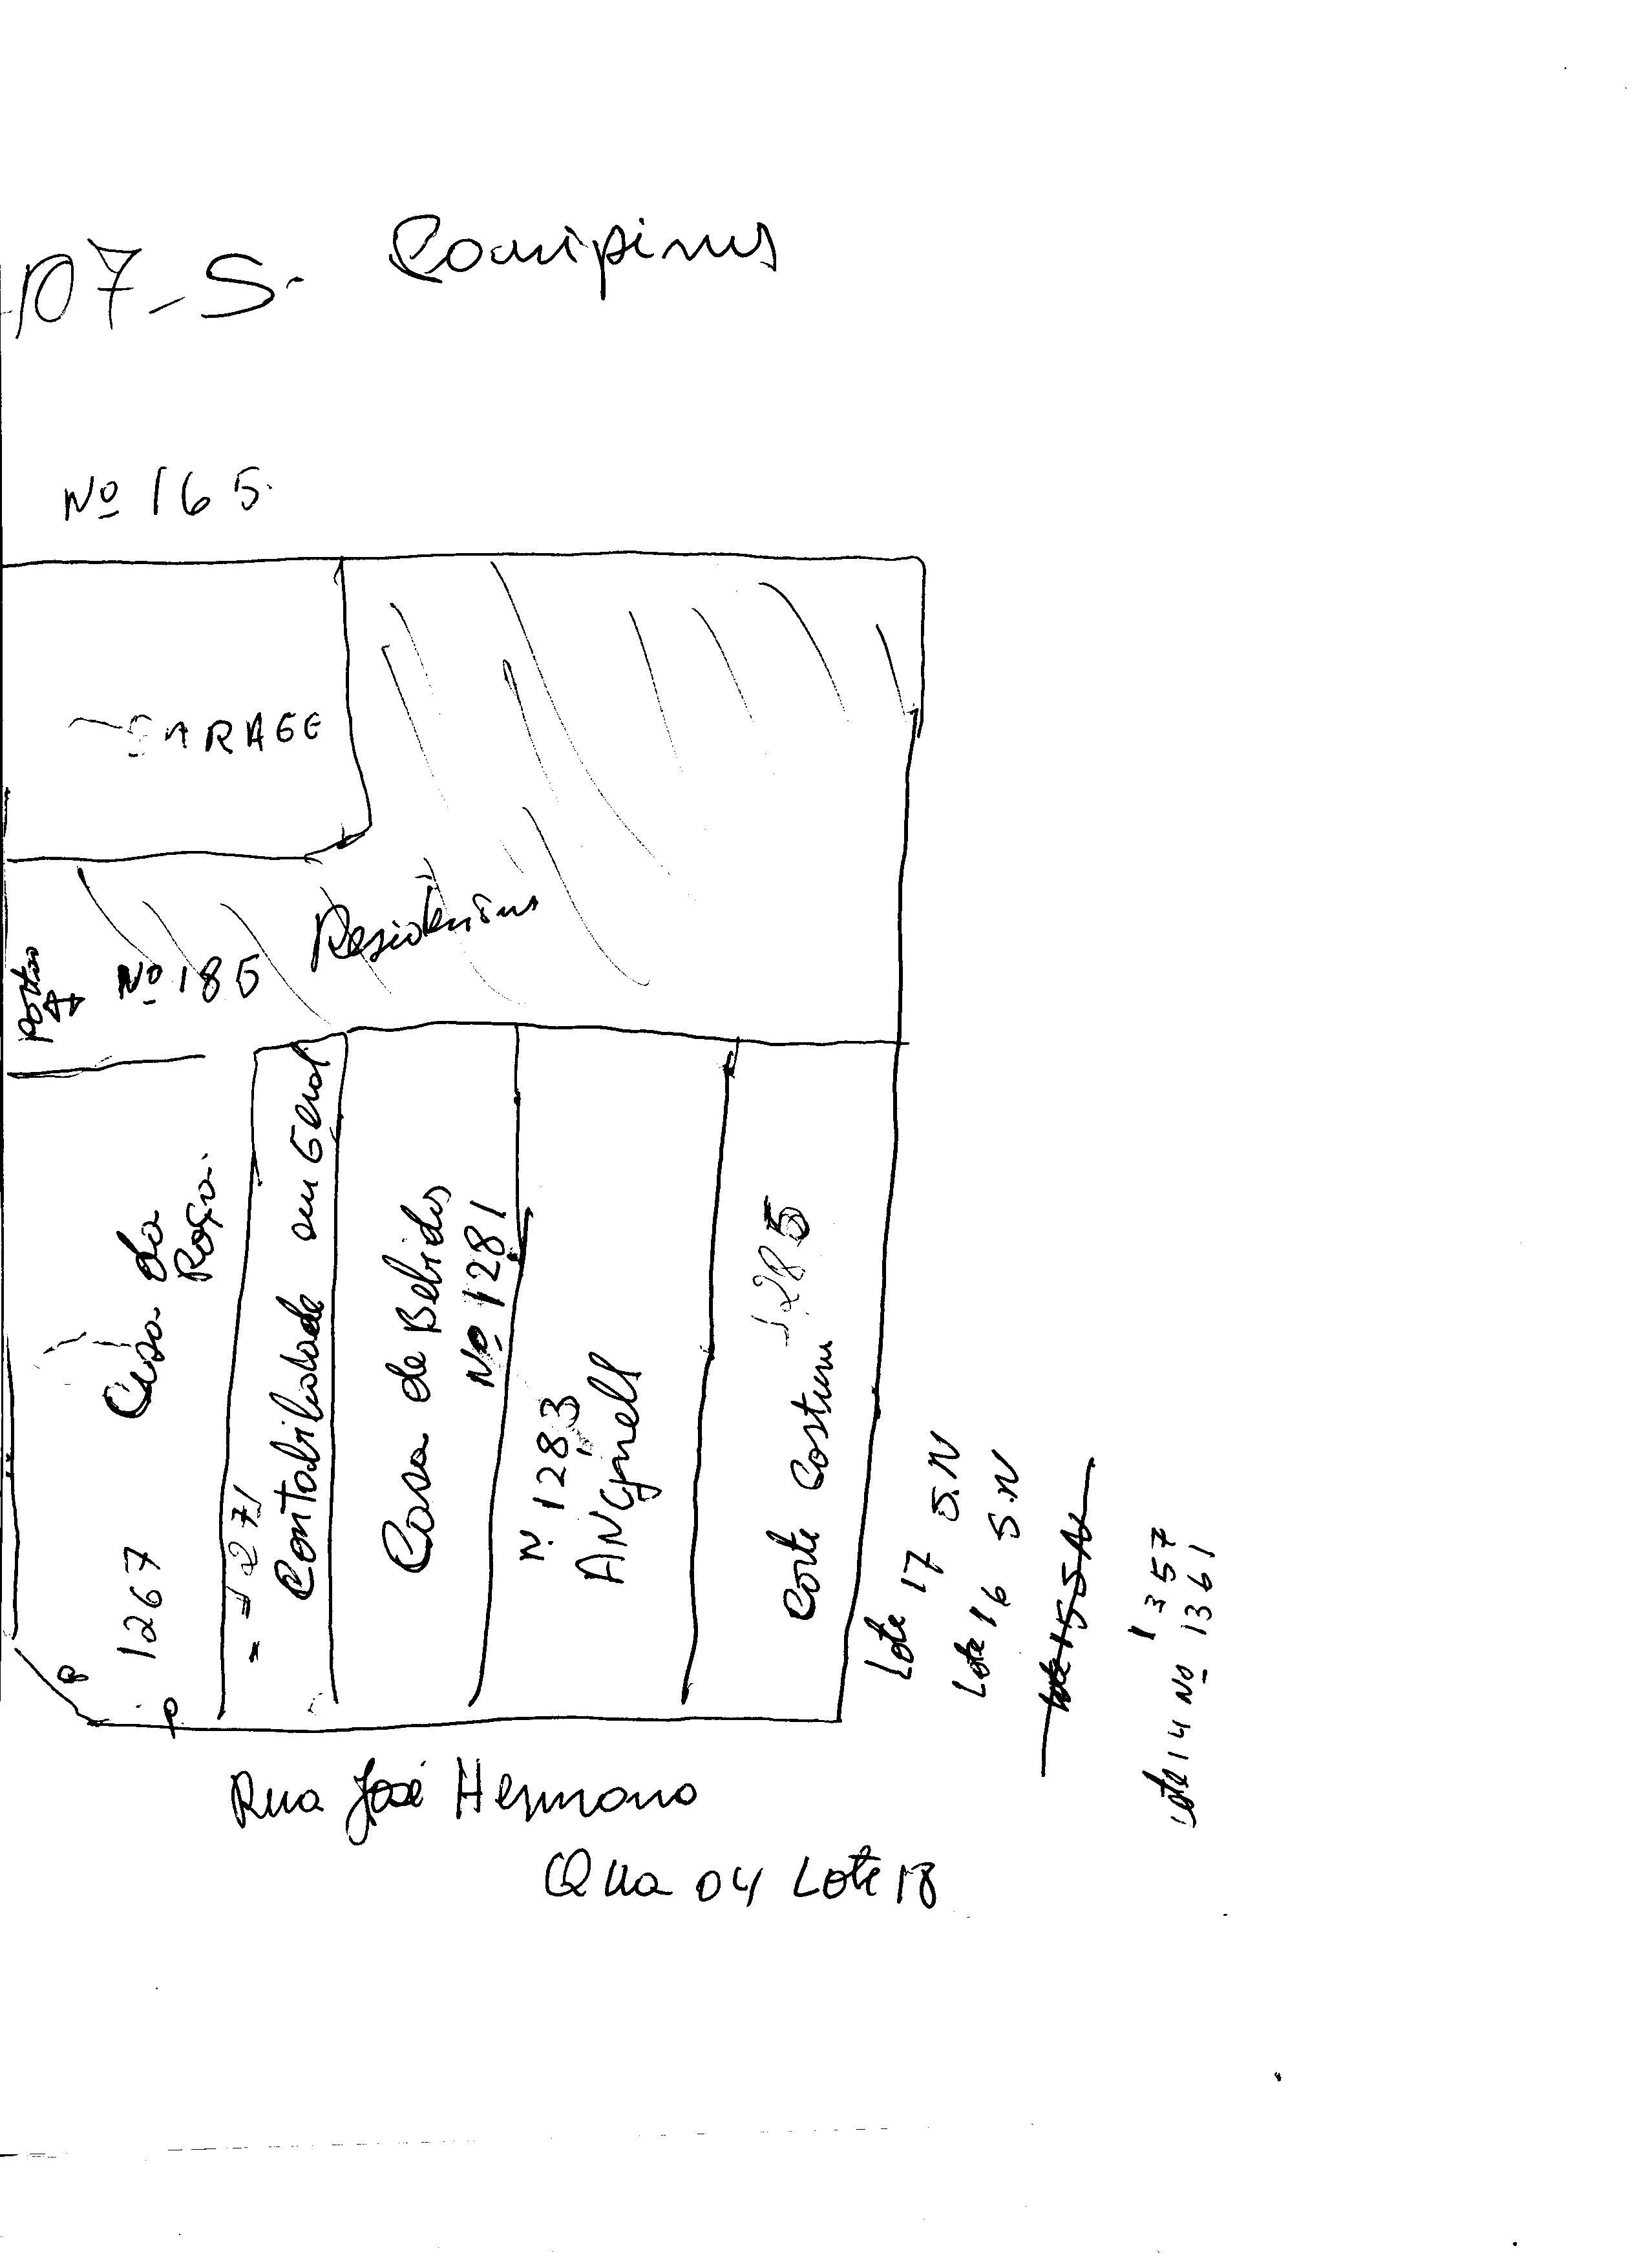 107-S. Campinas
Nº 165
GARAGE
Residencias
Nº 185
Portão
Casa da
Roça.
1267
1271
Contabilidade em Geral
Casa de Bebidas
Nº 1281
Nº 1283
Corte Costura 1285
Lote 17 S.N
Lote 16 S.N
Lote 15 SN
1357
Lote 14 Nº 1361
Rua José Hermano
Qua 04 Lote 18